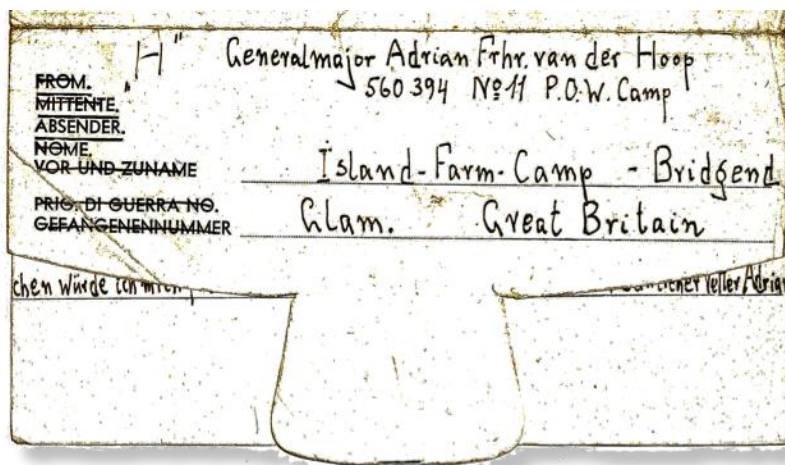 "H" Generalmajor Adrian Frhr. van der Hoop
560 394 № 11 P.O.W. Camp
FROM.
MITTENTE.
ABSENDER.
NOME.
VOR UND ZUNAME
Island-Farm-Camp - Bridgend
PRIG. DI GUERRA NO.
GEFANGENENNUMMER
Glam. Great Britain
chen würde ich mich
Vetter Adrian